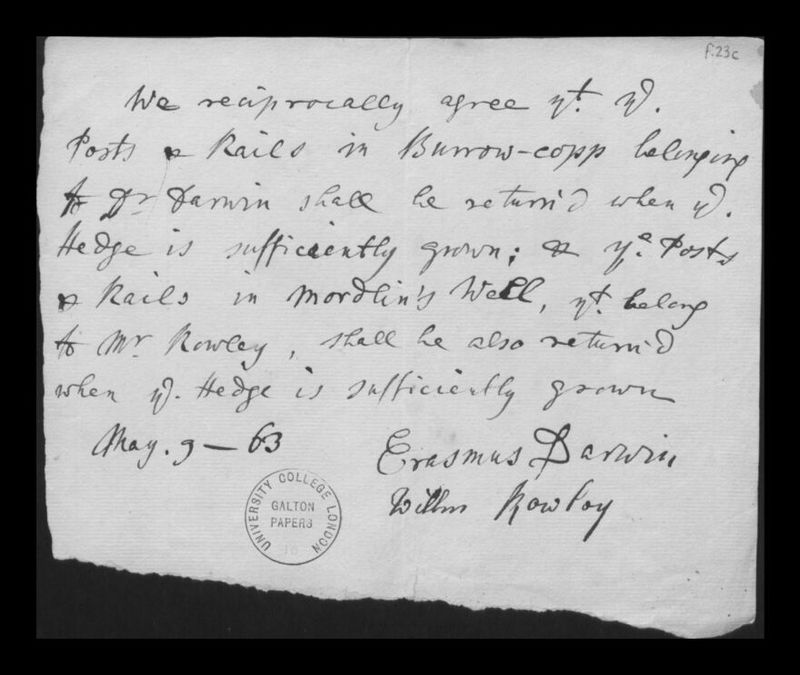 f.23c
We reciprocally agree yt. ye.
Posts & Rails in Burrow-copp belonging
to Dr Darwin shall be return'd when ye.
Hedge is sufficiently grown; & ye. Posts
& Rails in Mordlin's Well, yt. belong
to Mr Rowley, shall be also return'd
when ye. Hedge is sufficiently grown
May. 9 — 63
Erasmus Darwin
Willm Rowley
UNIVERSITY COLLEGE LONDON
GALTON
PAPERS